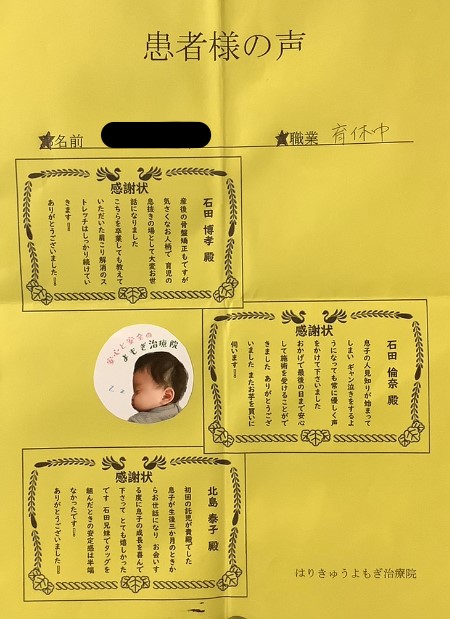 患者様の声
★お名前
★職業 育休中
感謝状
石田 博孝 殿
産後の骨盤矯正もですが
気さくなお人柄で 育児の
息抜きの場として大変お世
話になりました
こちらを卒業しても教えて
いただいた肩こり解消のス
トレッチはしっかり続けてい
きます!!
ありがとうございました!!
感謝状
石田 倫奈 殿
息子の人見知りが始まって
しまい ギャン泣きをするよ
うになっても常に優しく声
をかけて下さいました
おかげで最後の日まで安心
して施術を受けることがで
きました ありがとうござ
いました またお芋を買いに
伺います!!
安心と安全の
よもぎ治療院
感謝状
北島 泰子 殿
初回の託児が貴殿でした
息子が生後三か月のときか
らお世話になり お会いす
る度に息子の成長を喜んで
下さって とても嬉しかった
です 石田兄妹でタッグを
組んだときの安定感は半端
なかったです!!
ありがとうございました!!
はりきゅうよもぎ治療院